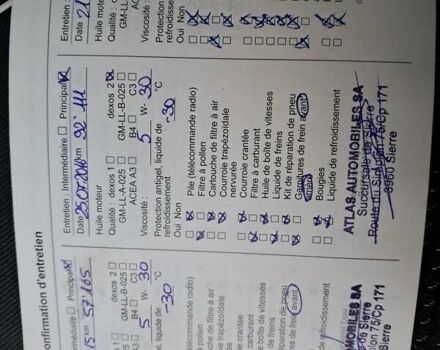 onfirmation d'entretien
Entretien : Intermédiaire Principal
Date 25.07.2016 km 92'111
Huile moteur
Qualité : dexos 1 dexos 2
GM-LL-A-025 GM-LL-B-025
ACEA A3 B4 C3
Viscosité : 5 W- 30
Protection antigel, liquide de
refroidissement -30 °C
Oui Non
Pile (télécommande radio)
Filtre à pollen
Cartouche de filtre à air
Courroie trapézoïdale
nervurée
Courroie crantée
Filtre à carburant
Huile de boîte de vitesses
Liquide de freins
Kit de réparation de pneu
Garnitures de frein avant
Bougies
Liquide de refroidissement
ATLAS AUTOMOBILES SA
Succursale de Sierre
Route du Simplon 75/Cp 171
3960 Sierre
Entretien
Date 21
Huile moteur
Qualité : d
GM-LL
ACEA
Viscosité :
Protection
refroidisse
Oui Non
Principal
15 km 57'165
dexos 2
GM-LL-B-025
B4 C3
5 W- 30
liquide de
-30 °C
commande radio)
en
de filtre à air
trapézoïdale
crantée
carburant
te de vitesses
freins
paration de pneu
de frein avant
e refroidissement
MOBILES SA
de Sierre
on 75/Cp 171
Sierre